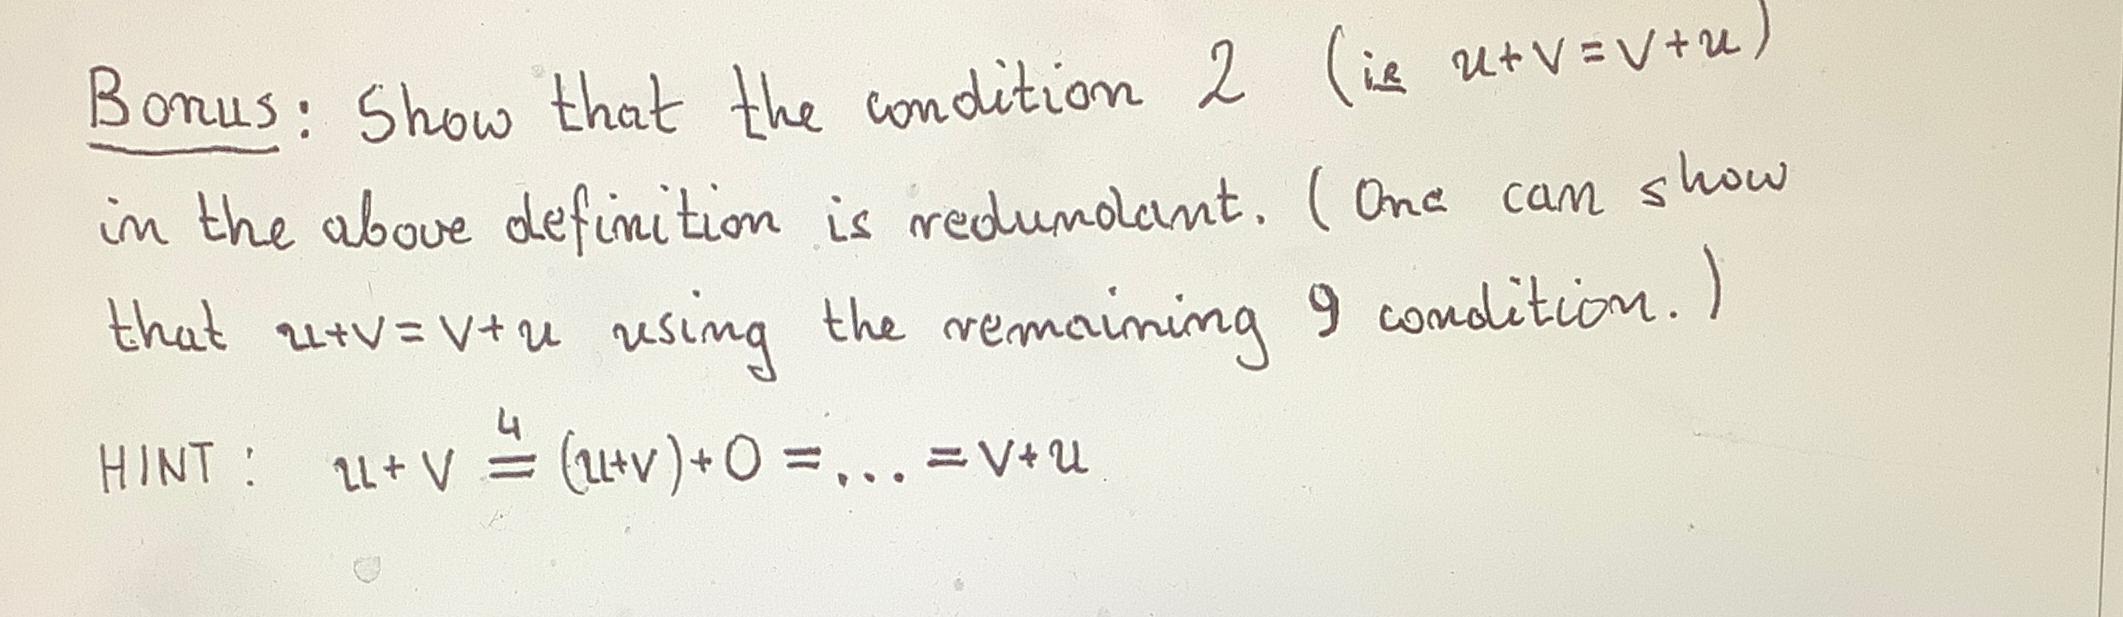 Bonus: Show that the condition 2 (ie u+v=v+u)
in the above definition is redundant. (One can show
that u+v=v+u using the remaining 9 condition.)
HINT: u+v ≟4 (u+v)+0 = ... = v+u